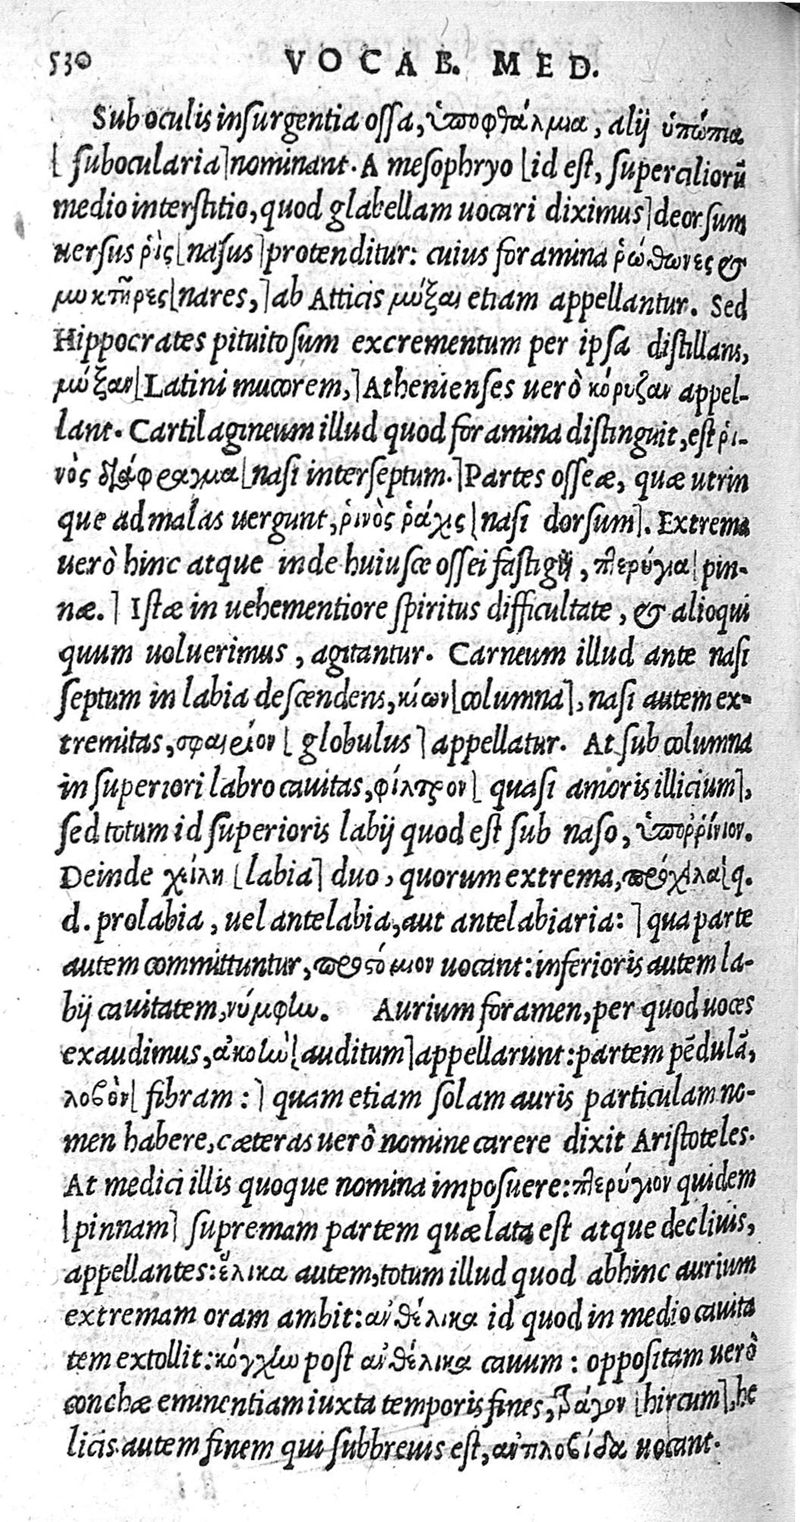 530 VOCAB. MED.
Sub oculis insurgentia ossa, ὑποφθάλμια, alij ὑπώπια
[ subocularia] nominant. A mesophryo [id est, superciliorũ
medio interstitio, quod glabellam uocari diximus] deorsum
uersus ῥὶς [nasus] protenditur: cuius foramina ῥώθωνες &
μυκτῆρες [nares,] ab Atticis μύξαι etiam appellantur. Sed
Hippocrates pituitosum excrementum per ipsa distillans,
μύξαν [Latini mucorem,] Athenienses uerò κόρυζαν appel-
lant. Cartilagineum illud quod foramina distinguit, est ῥι-
νὸς διάφραγμα [nasi interseptum.] Partes osseæ, quæ utrin
que ad malas uergunt, ῥινὸς ῥάχις [nasi dorsum]. Extrema
uerò hinc atque inde huiusce ossei fastigij, πτερύγια [pin-
næ.] Istæ in uehementiore spiritus difficultate, & alioqui
quum uoluerimus, agitantur. Carneum illud ante nasi
septum in labia descendens, κίων [columna], nasi autem ex-
tremitas, σφαιρίον [ globulus] appellatur. At sub columna
in superiori labro cauitas, φίλτρον [ quasi amoris illicium],
sed totum id superioris labij quod est sub naso, ὑπορρίνιον.
Deinde χείλη [labia] duo, quorum extrema, πρόχειλα [q.
d. prolabia, uel antelabia, aut antelabiaria: ] qua parte
autem committuntur, προστόμιον uocant: inferioris autem la-
bij cauitatem, νύμφην. Aurium foramen, per quod uoces
exaudimus, ἀκοὴν [auditum] appellarunt: partem pẽdulã,
λοβὸν [ fibram : ] quam etiam solam auris particulam no-
men habere, cæteras uerò nomine carere dixit Aristoteles.
At medici illis quoque nomina imposuere: πτερύγιον quidem
[pinnam] supremam partem quæ lata est atque decliuis,
appellantes: ἕλικα autem, totum illud quod abhinc aurium
extremam oram ambit: ἀνθέλικα id quod in medio cauita
tem extollit: κόγχην post ἀνθέλικα cauum : oppositam uerò
conchæ eminentiam iuxta temporis fines, τράγον [hircum], he
licis autem finem qui subbreuis est, ἀντιλοβίδα uocant.